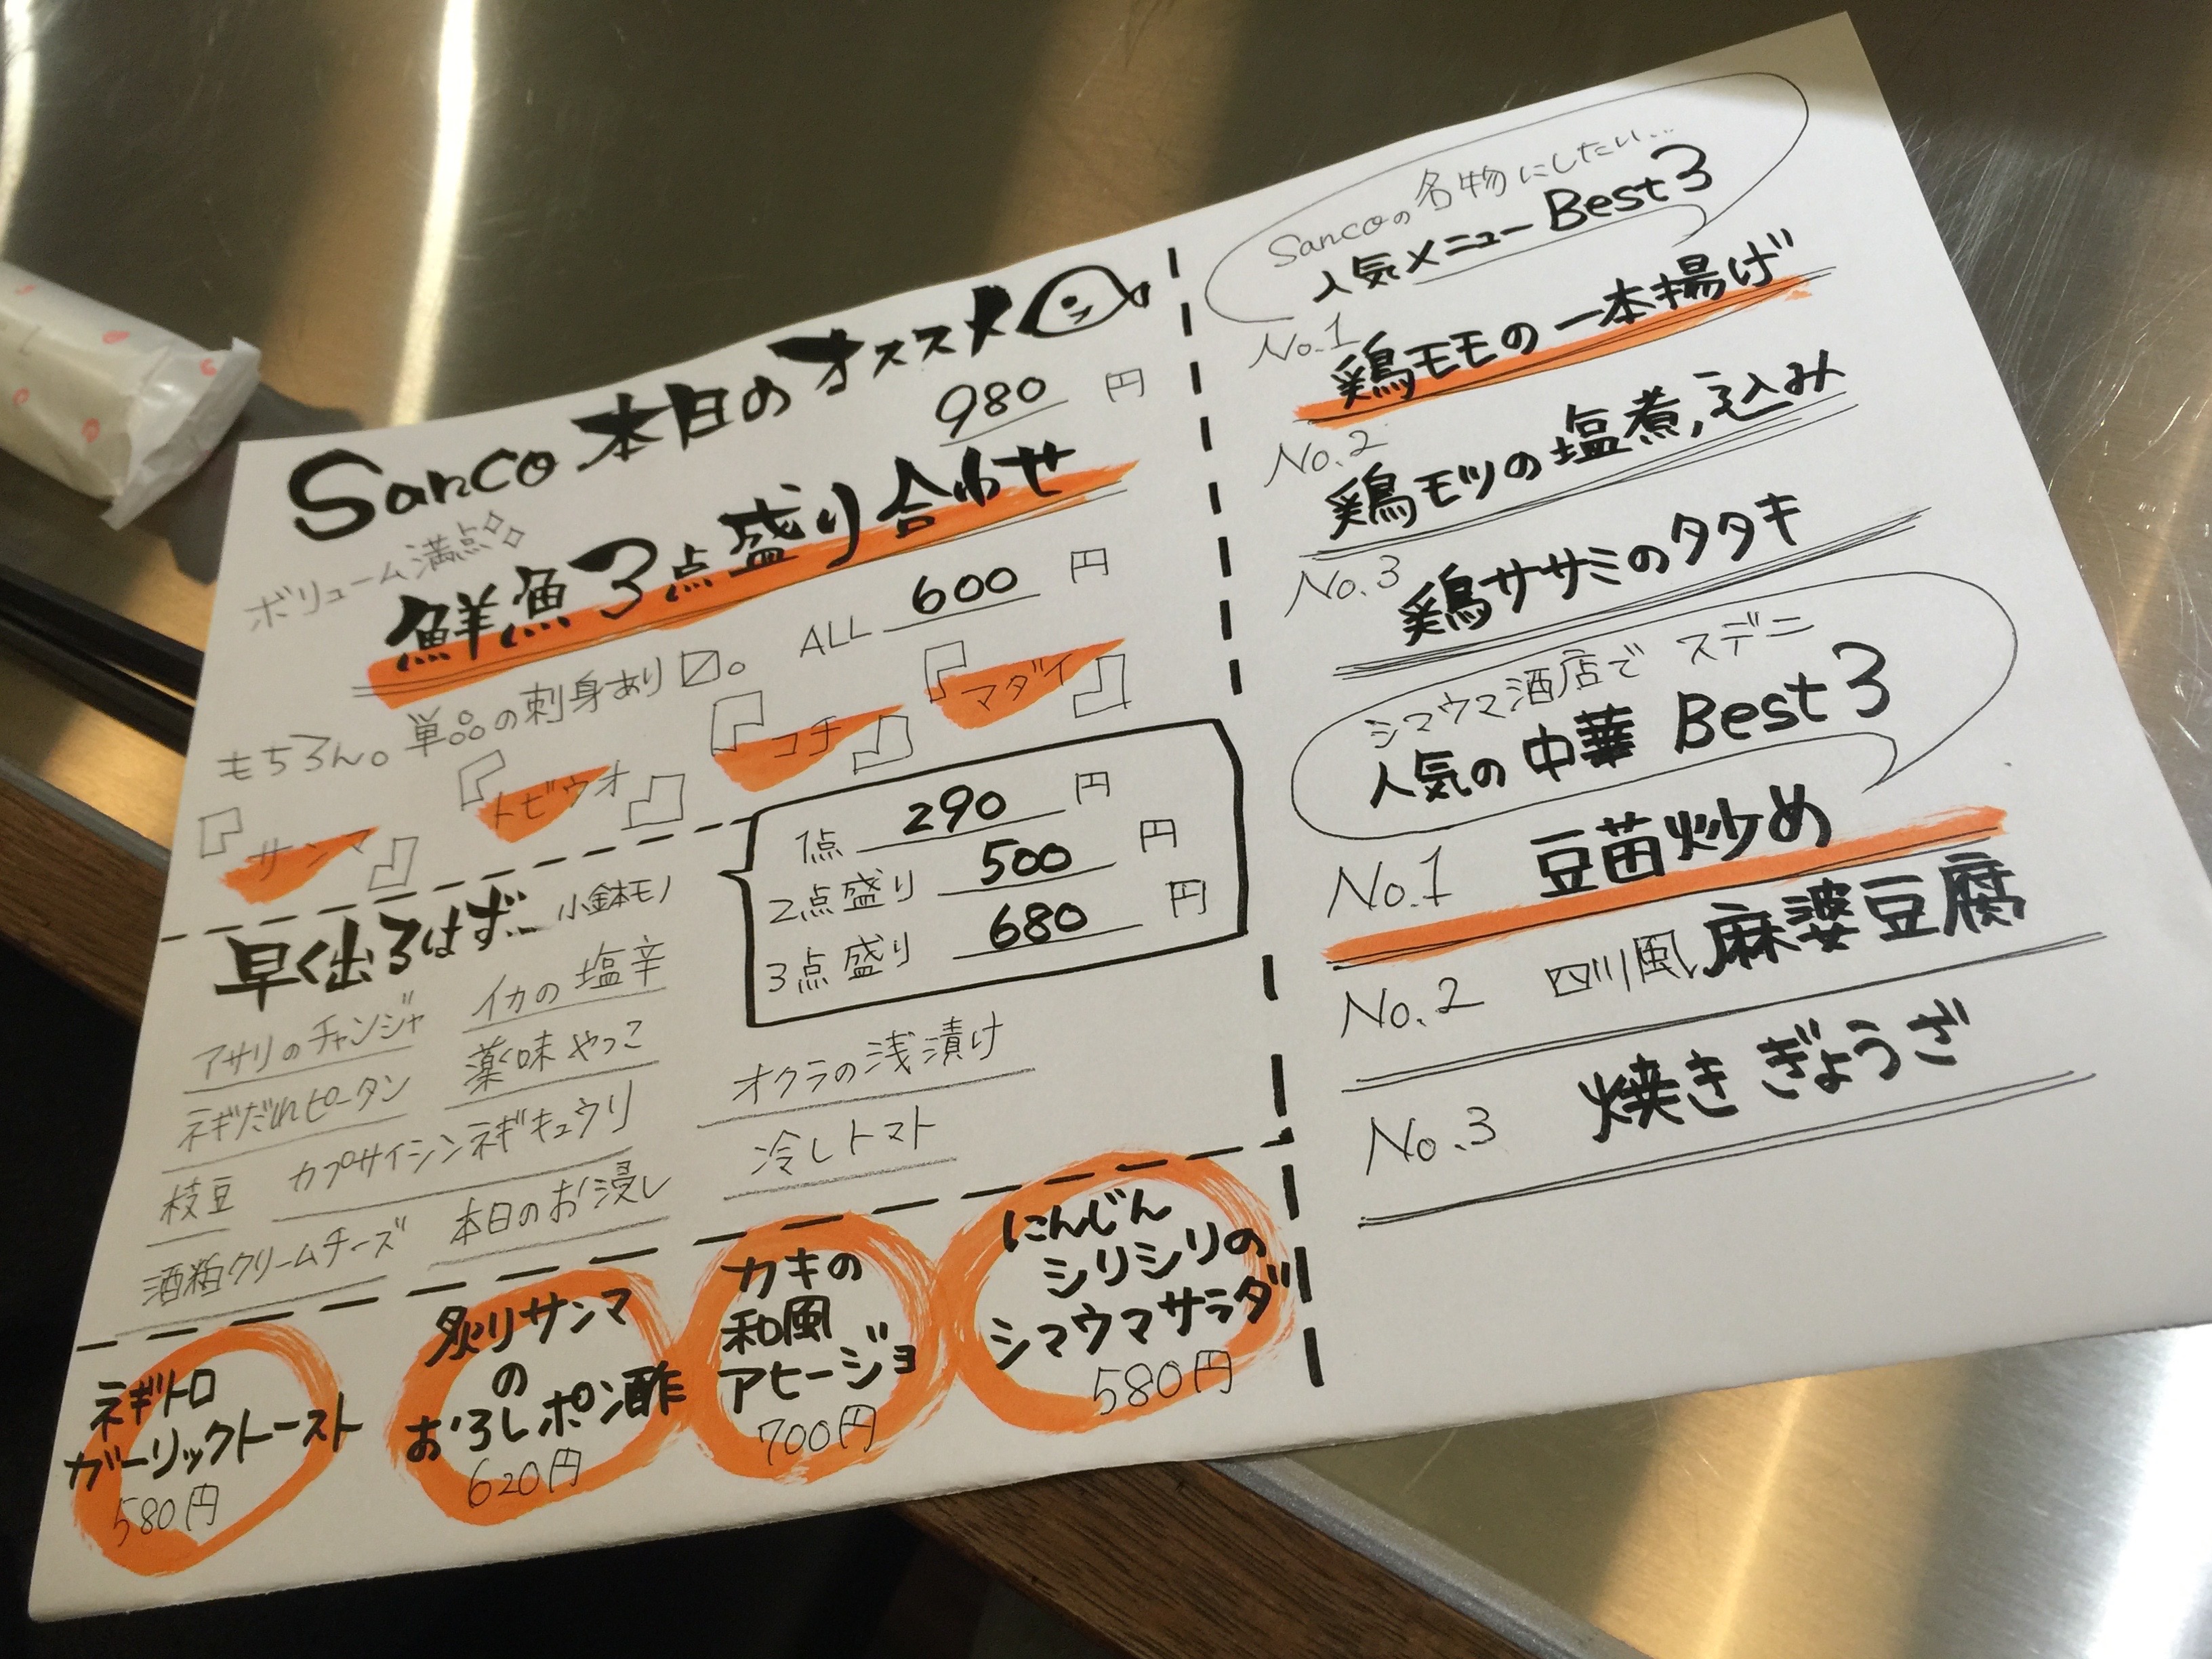 Sanco 本日のオススメ
980 円
ボリューム満点
鮮魚3点盛り合わせ
もちろん。単品の刺身あり〼。 ALL 600 円
『サンマ』『トビウオ』『コチ』『マダイ』
早く出るはず… 小鉢モノ
1点 290 円
2点盛り 500 円
3点盛り 680 円
アサリのチャンジャ イカの塩辛
ネギだれピータン 薬味やっこ オクラの浅漬け
枝豆 カプサイシンネギキュウリ 冷しトマト
酒粕クリームチーズ 本日のお浸し
ネギトロ
ガーリックトースト
580円
炙りサンマ
の
おろしポン酢
620円
カキの
和風
アヒージョ
700円
にんじん
シリシリの
シマウマサラダ
580円
Sancoの名物にしたい…
人気メニューBest3
No.1
鶏モモの一本揚げ
No.2
鶏モツの塩煮込み
No.3
鶏ササミのタタキ
シマウマ酒店で スデニ
人気の中華 Best3
No.1 豆苗炒め
No.2 四川風麻婆豆腐
No.3 焼きぎょうざ